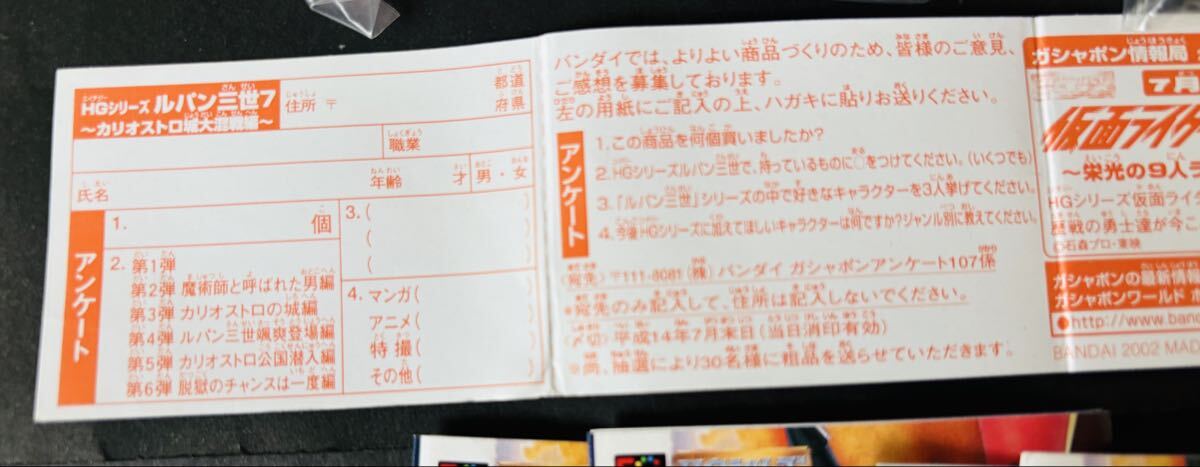 HGシリーズ ルパン三世7
〜カリオストロ城大混戦編〜
住所 〒
都道
府県
職業
氏名
年齢
才
男・女
アンケート
1.
個
2. 第1弾
第2弾 魔術師と呼ばれた男編
第3弾 カリオストロの城編
第4弾 ルパン三世颯爽登場編
第5弾 カリオストロ公国潜入編
第6弾 脱獄のチャンスは一度編
3. (
(
(
4. マンガ(
アニメ(
特撮(
その他(
バンダイでは、よりよい商品づくりのため、皆様のご意見、
ご感想を募集しております。
左の用紙にご記入の上、ハガキに貼りお送りください。
アンケート
1.この商品を何個買いましたか?
2.HGシリーズルパン三世で、持っているものに○をつけてください。(いくつでも)
3.「ルパン三世」シリーズの中で好きなキャラクターを3人挙げてください。
4.今後HGシリーズに加えてほしいキャラクターは何ですか?ジャンル別に教えてください。
(宛先)〒111-8081(株) バンダイ ガシャポンアンケート107係
●宛先のみ記入して、住所は記入しないでください。
(〆切)平成14年7月末日(当日消印有効)
※尚、抽選により30名様に粗品を送らせていただきます。
ガシャポン情報局
7月
仮面ライダ
〜栄光の9人ラ
HGシリーズ仮面ライ
歴戦の勇士達が今こ
©石森プロ・東映
ガシャポンの最新情報
ガシャポンワールド
●http://www.band
BANDAI 2002 MAD